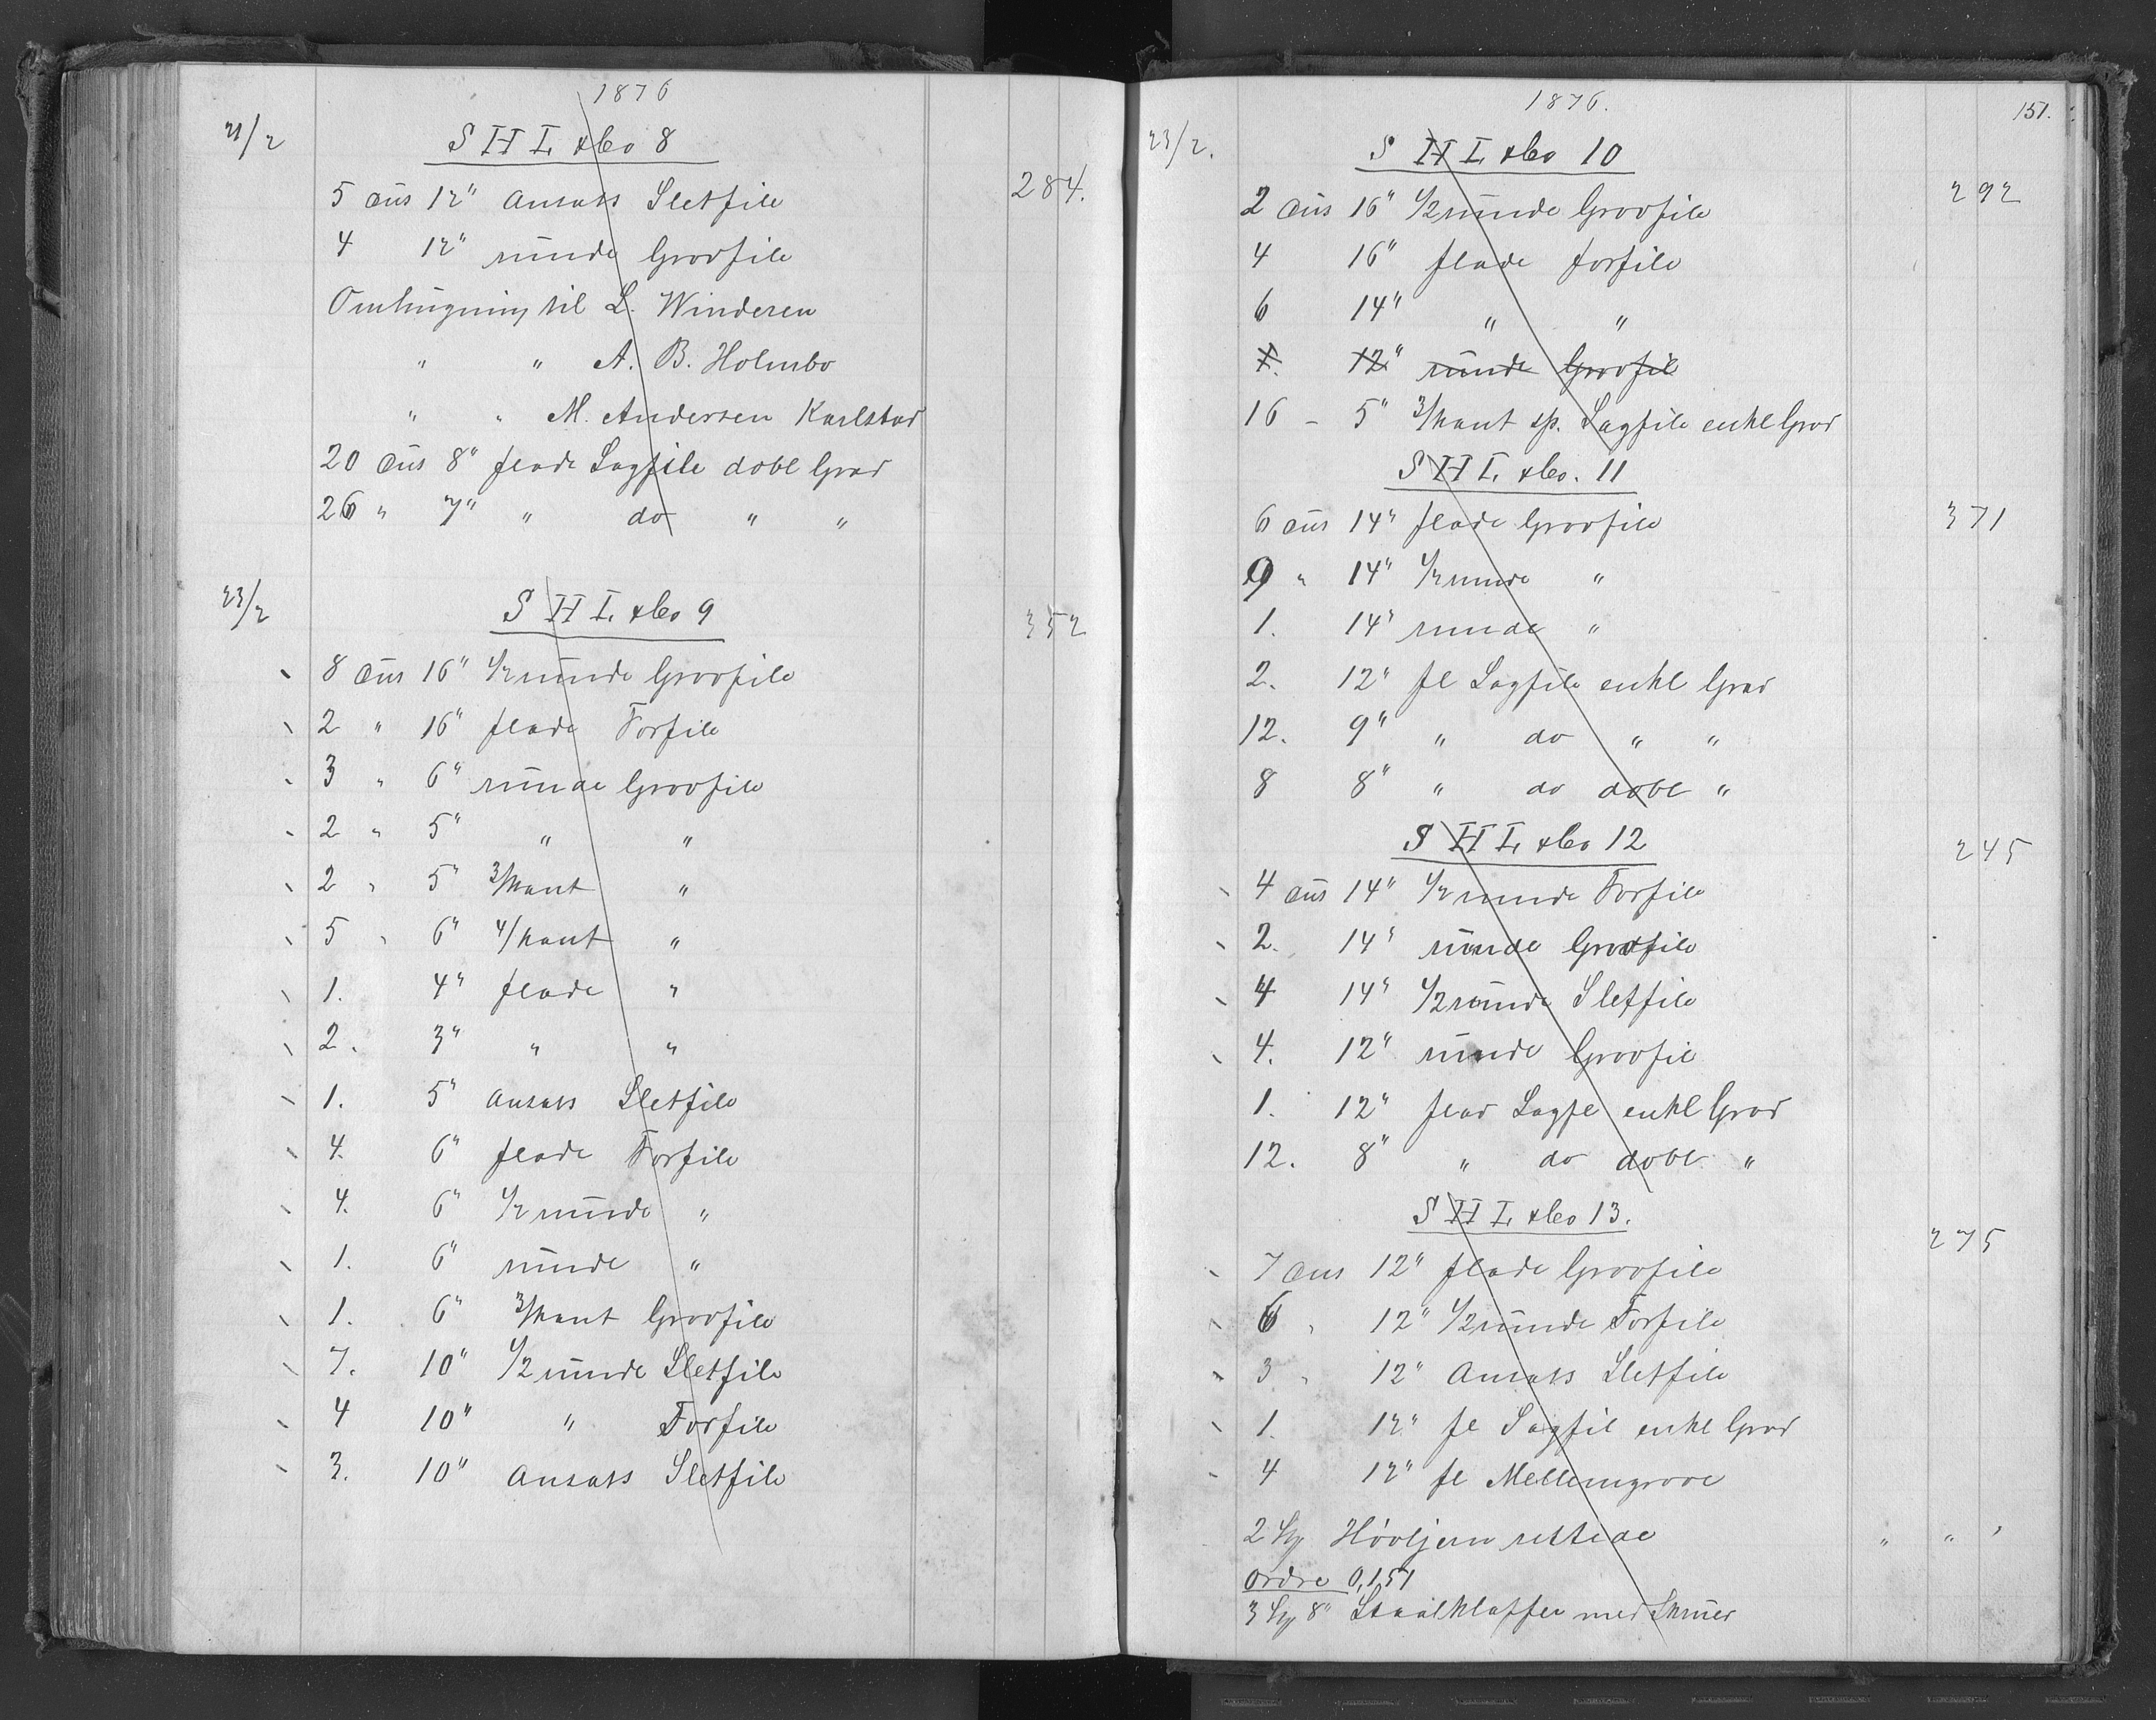 1876
21/2
S H L & Co 8
5 dus 12" Ansats Sletfile 284.
4 12" runde Grovfile
Omhugning til L. Winderen
" " A. B. Holmbo
" " M. Andersen Karlstad
20 dus 8" flade Sagfile dobl Grad
26 " 7" " do " "
23/2
S H L & Co 9 352
8 dus 16" 1/2 runde Grovfile
2 " 16" flade Forfile
3 " 6" runde Grovfile
2 " 5" " "
2 " 5" 3/kant "
5 " 6" 4/kant "
1. 4" flade "
2. 3" " "
1. 5" Ansats Sletfile
4. 6" flade Forfile
4. 6" 1/2 runde "
1. 6" runde "
1. 6" 3/kant Grovfile
7. 10" 1/2 runde Sletfile
4 10" " Forfile
3. 10" Ansats Sletfile
1876.
151.
23/2.
S H L & Co 10
2 dus 16" 1/2 runde Grovfile 292
4 16" flade forfile
6 14" " "
1. 12" runde Grovfil
16 - 5" 3/kant sp. Sagfile enkl Grad
S H L & Co. 11
6 dus 14" flade Grovfile 371
9 " 14" 1/2 runde "
1. 14" runde "
2. 12" fl Sagfile enkl Grad
12. 9" " do " "
8 8" " do dobl "
S H L & Co 12 245
4 dus 14" 1/2 runde Forfile
2. 14" runde Grovfile
4 14" 1/2 runde Sletfile
4. 12" runde Grovfil
1. 12" flad Sagfl enkl Grad
12. 8" " do dobl "
S H L & Co 13.
275
7 dus 12" flade Grovfile
6 " 12" 1/2 runde Forfile
3 " 12" Ansats Sletfile
1. 12" fl Sagfil enkl Grad
4 12" fl Mellemgrove
2 Høvljern rettede " " "
Ordre 0,151
3 8" Staalklaffer med Skruer